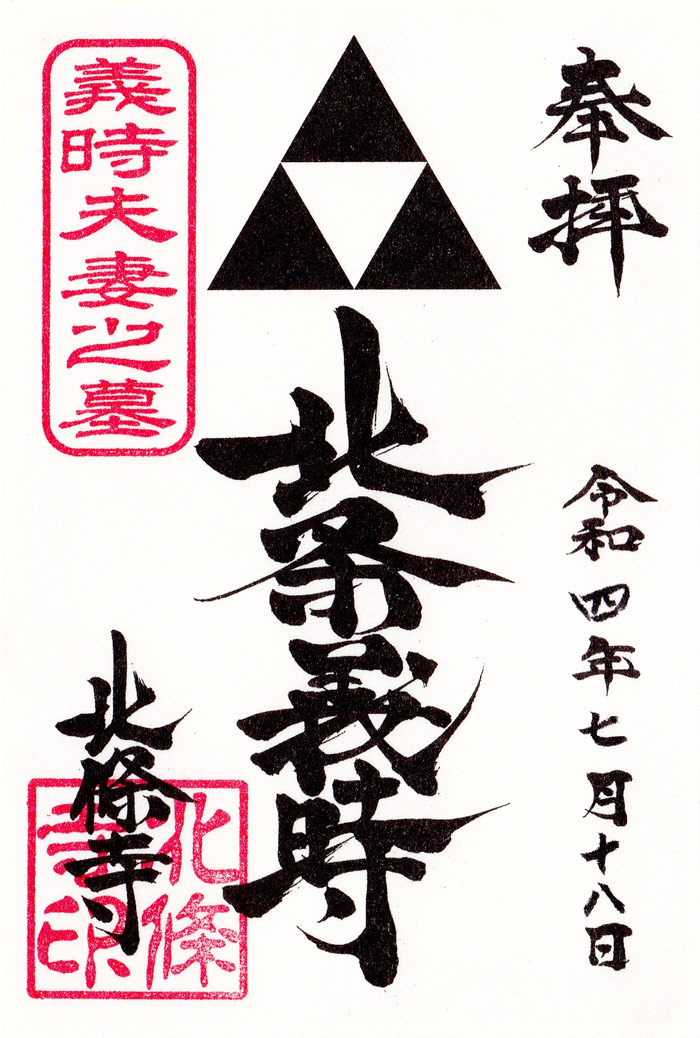 奉拝
令和四年七月十八日
北条義時
義時夫妻之墓
北條寺
北條寺印